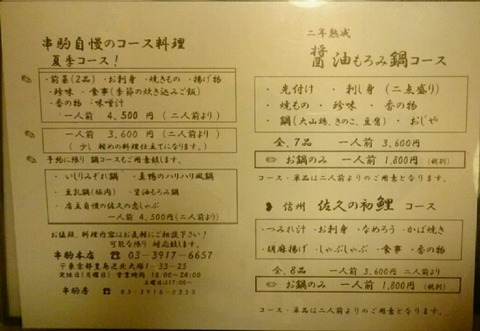 串駒自慢のコース料理
夏季コース！
・前菜(2品)・お刺身・焼きもの・揚げ物
・珍味・食事(季節の炊き込みご飯)
・香の物・味噌汁
一人前 4,500円(二人前より)
一人前 3,600円(二人前より)
(少し軽めの料理仕立てになります。)
予約に限り 鍋コースもご用意致します。
・いしりみぞれ鍋・真鴨のハリハリ風鍋
・豆乳鍋(豚肉)・醤油もろみ鍋
・店主自慢の佐久の恋しゃぶ
一人前 4,500円(二人前より)
お値段、料理内容はお気軽にご相談下さい！
可能な限り対応致します。
串駒本店 ☎ 03-3917-6657
〒東京都豊島区北大塚1-33-25
定休日(月曜日) 営業時間 18:00~24:00
土曜日は17:00~
串駒房 ☎ 03-3916-0255
二年熟成
醤油もろみ鍋コース
・先付け・刺し身(二点盛り)
・焼もの・珍味・香の物
・鍋(大山鶏、きのこ、豆腐)・おじや
全、7品 一人前 3,600円
お鍋のみ 一人前 1,800円(税別)
コース・単品は二人前よりのご用意となります。
信州 佐久の初鯉 コース
・つみれ汁・お刺身・なめろう・かば焼き
・胡麻揚げ・しゃぶしゃぶ・食事・香の物
全、8品 一人前 3,600円 二人前より
お鍋のみ 一人前 1,800円(税別)
コース・単品は二人前よりのご用意となります。